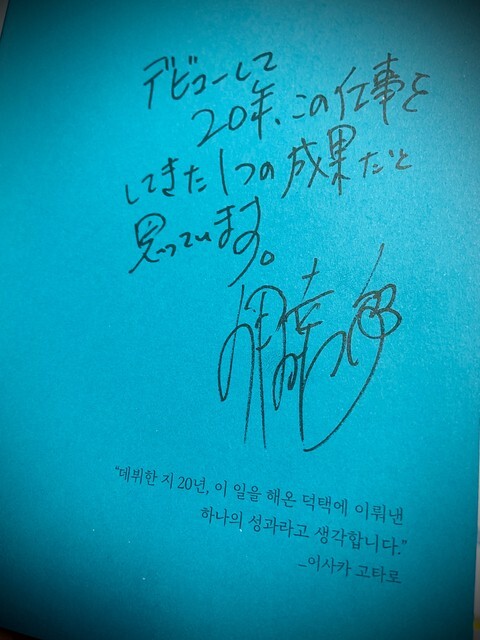 デビューして
20年、この仕事を
してきた1つの成果だと
思っています。
"데뷔한 지 20년, 이 일을 해온 덕택에 이뤄낸
하나의 성과라고 생각합니다."
_이사카 고타로